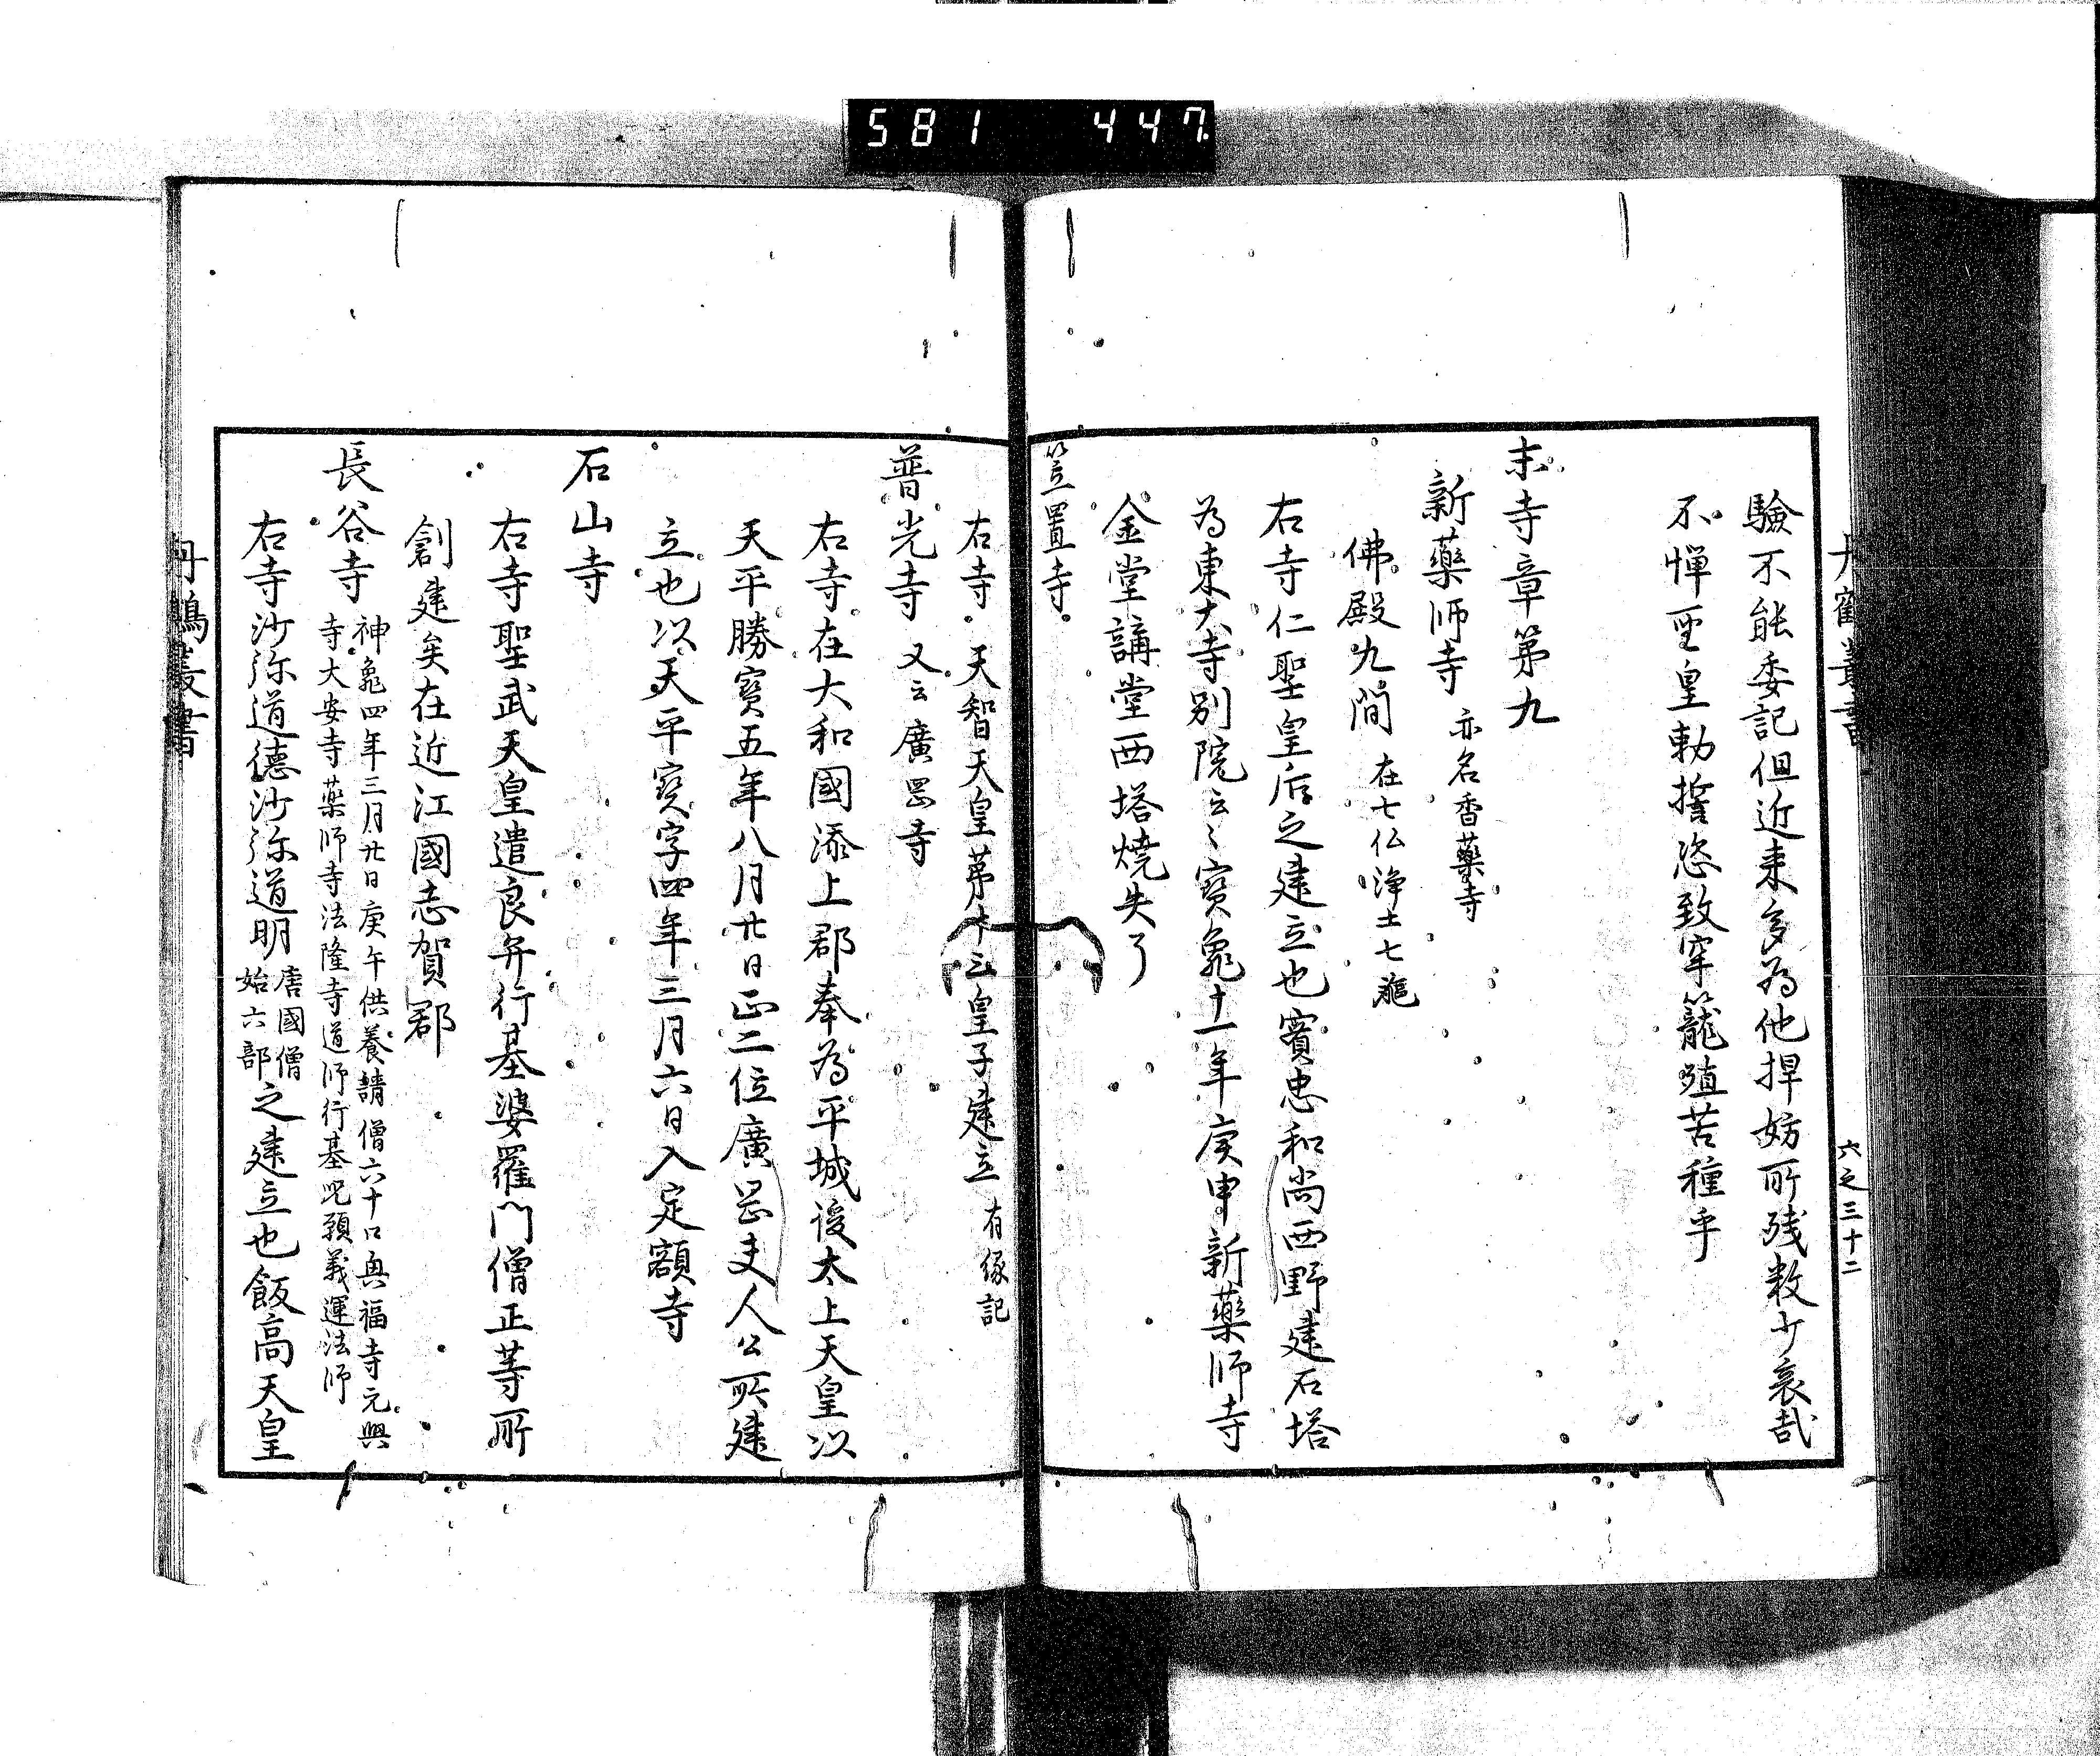 581 447
六之三十二
驗不能委記但近来多為他捍妨所残数少哀哉
不憚聖皇勅誓恣致牢籠殖苦種乎
末寺章第九
新藥師寺 亦名香藥寺
佛殿九間 在七仏浄土七軀
右寺仁聖皇后之建立也實忠和尚西野建石塔
為東大寺別院云〻寶龜十一年庚申新藥師寺
金堂講堂西塔燒失了
笠置寺
右寺天智天皇第十三皇子建立 有縁記
普光寺 又云廣罡寺
右寺在大和國添上郡奉為平城後太上天皇以
天平勝寳五年八月廿日正二位廣罡夫人公所建
立也以天平寳字四年三月六日入定額寺
石山寺
右寺聖武天皇遣良弁行基婆羅門僧正等所
創建矣在近江國志賀郡
長谷寺 神龜四年三月廿日庚午供養請僧六十口興福寺元興
寺大安寺藥師寺法隆寺道師行基呪願義運法師
右寺沙弥道德沙弥道明 唐國僧
始六部 之建立也飯高天皇
丹鶴叢書